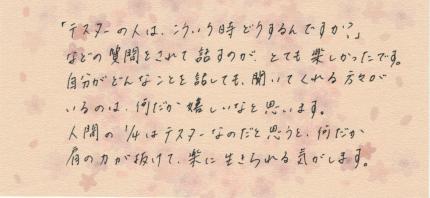 「テスターの人は、こういう時どうするんですか?」
などの質問をされて話すのが、とても楽しかったです。
自分がどんなことを話しても、聞いてくれる方々が
いるのは、何だか嬉しいなと思います。
人間の1/4はテスターなのだと思うと、何だか
肩の力が抜けて、楽に生きられる気がします。